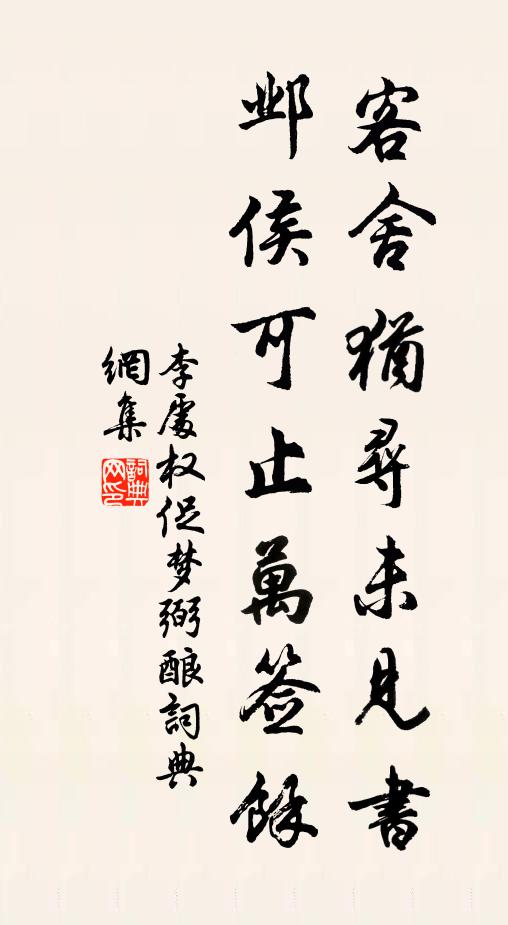 客舍猶尋未見書
邺侯可止萬签餘
李處权促梦弼酿詞典
網集
詞典
网印